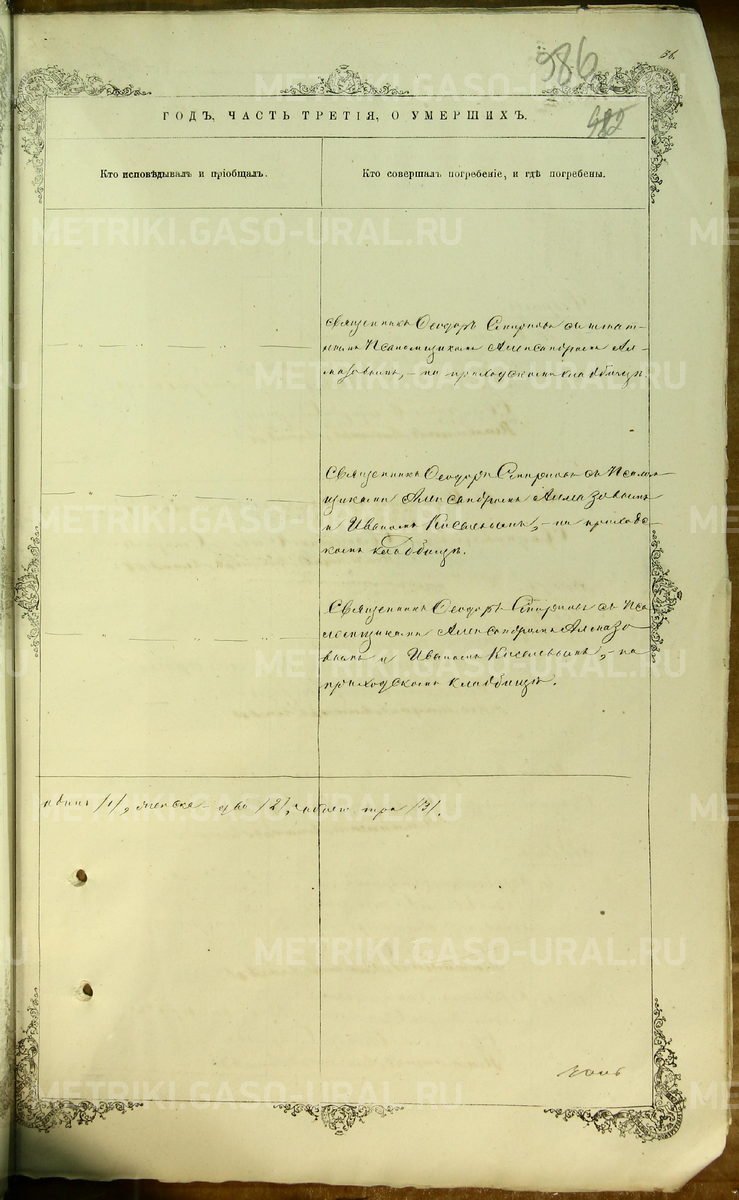 986
56.
982
ГОДЪ, ЧАСТЬ ТРЕТІЯ, О УМЕРШИХЪ.
Кто исповѣдывалъ и пріобщалъ.
Кто совершалъ погребеніе, и гдѣ погребены.
Священникъ Ѳеодоръ съ штат-
нымъ Псаломщикомъ Александромъ Ал-
мазовымъ, - на приходскомъ кладбищѣ
Священникъ Ѳеодоръ съ Псалом-
щиками Александромъ Алмазовымъ
и Иваномъ Киселевымъ, - на приход-
скомъ кладбищѣ.
Священникъ Ѳеодоръ съ Пса-
ломщиками Александромъ Алмазо-
вымъ и Иваномъ Киселевымъ, - на
приходскомъ кладбищѣ.
/1/, женска - две /2/, обоего три /3/.
METRIKI.GASO-URAL.RU